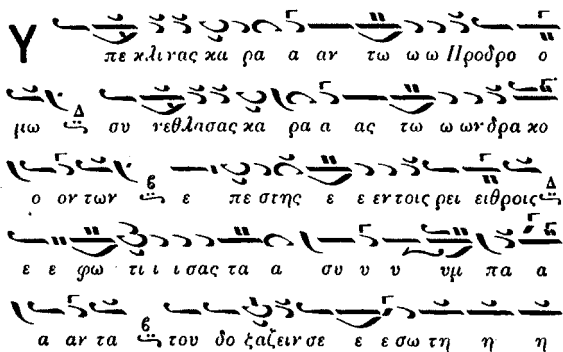 Υ πε κλινας κα ρα α αν τω ω ω Προδρο ο
μω Δ συ νεθλασας κα ρα α ας τω ω ων δρα κο
ο ον των β ε πε στης ε ε εν τοις ρει ειθροις Δ
ε ε φω τι ι ι σας τα α συ υ υ υμ πα α
α αν τα β του δο ξαζειν σε ε ε σω τη η η